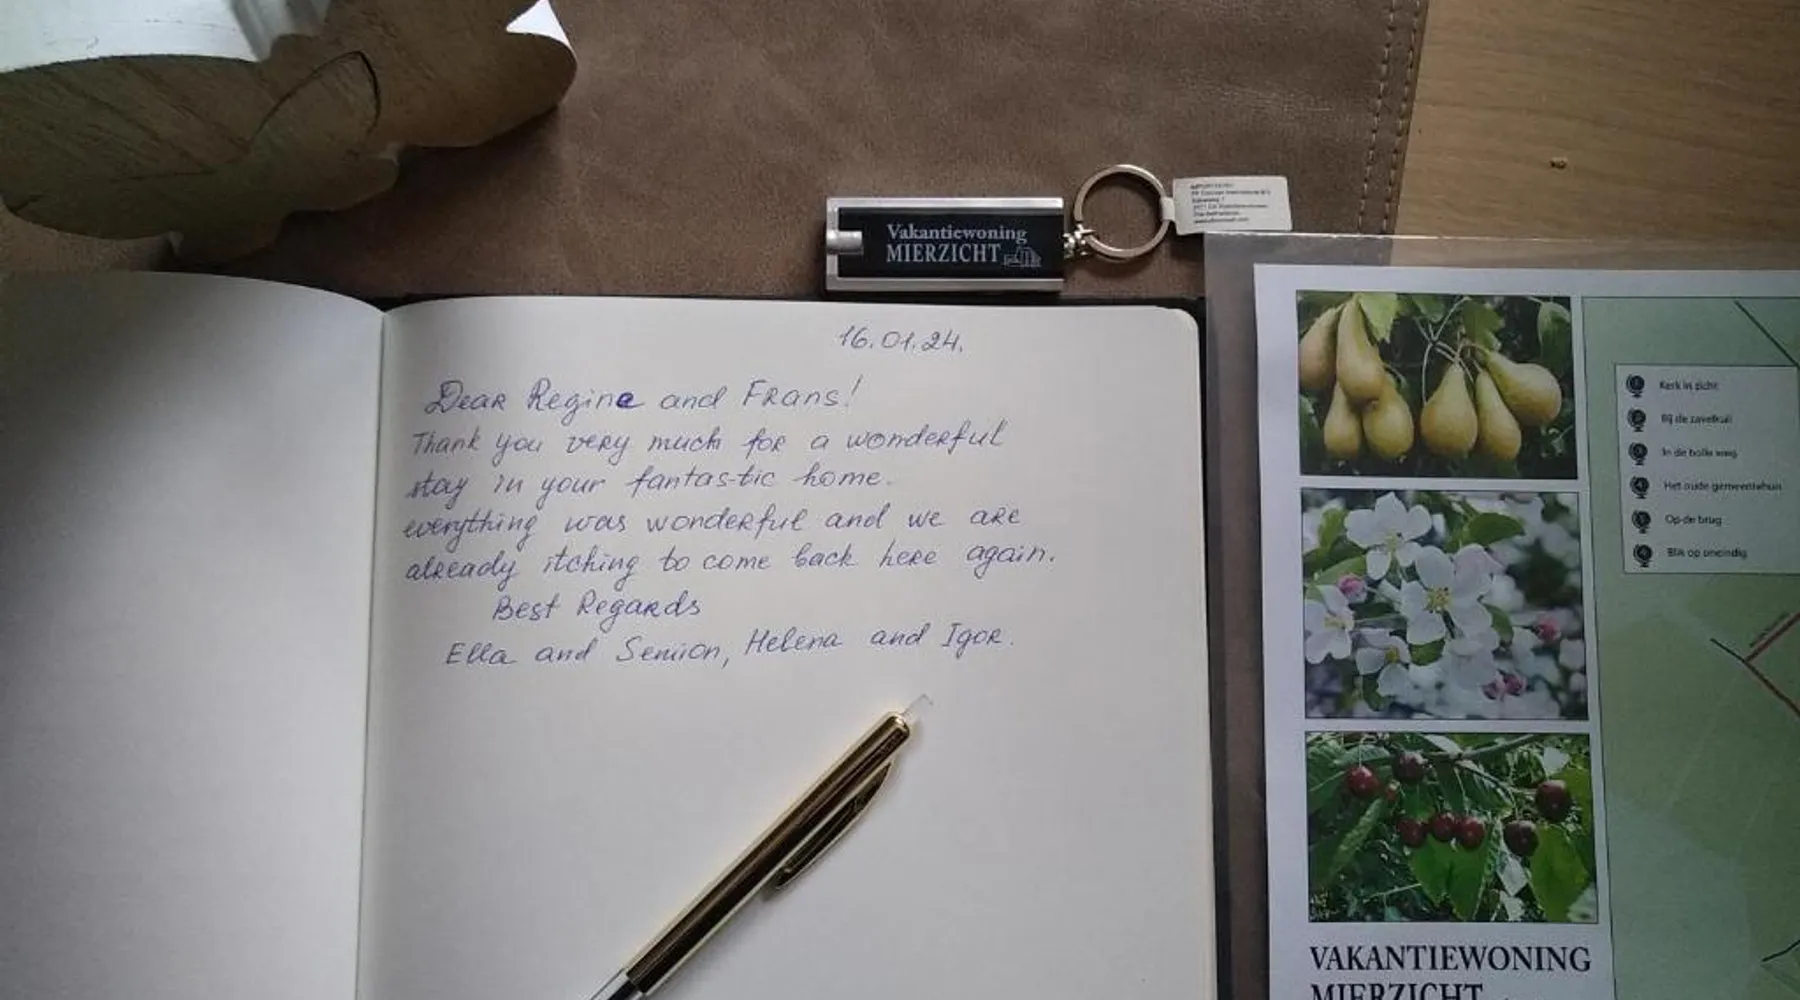 Vakantiewoning
MIERZICHT
16.01.24.
Dear Regine and Frans!
Thank you very much for a wonderful
stay in your fantastic home.
everything was wonderful and we are
already itching to come back here again.
Best Regards
Ella and Semion, Helena and Igor.
Kerk in zicht
Bij de zavelkuil
In de bolle weg
Het oude gemeentehuis
Op de brug
Blik op oneindig
VAKANTIEWONING
MIERZICHT